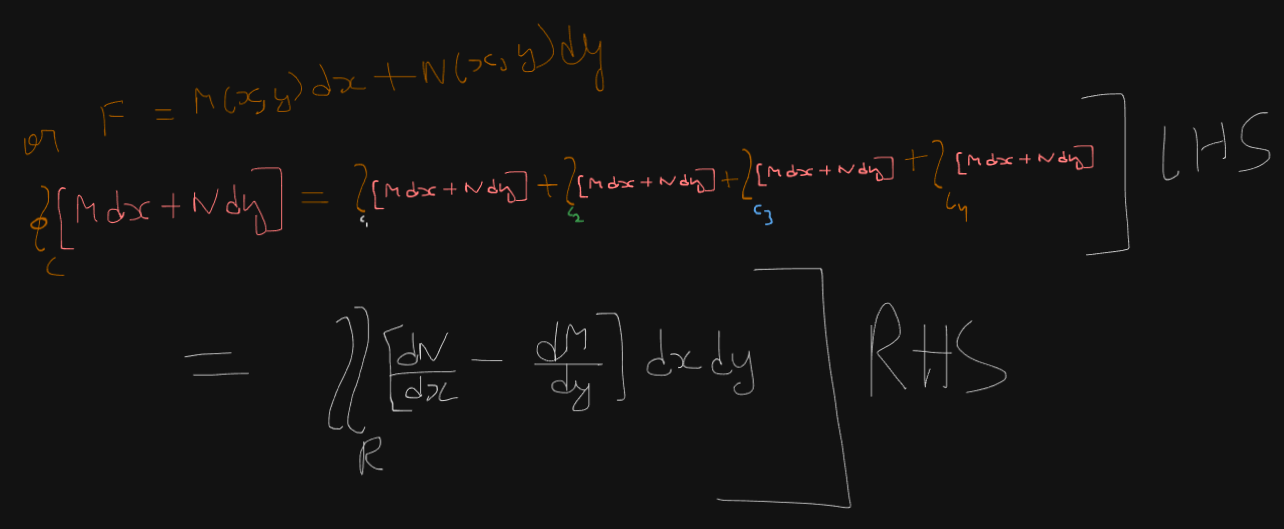 or F = M(x,y)dx + N(x,y)dy
∮_C [Mdx + Ndy] = ∫_C₁ [Mdx + Ndy] + ∫_C₂ [Mdx + Ndy] + ∫_C₃ [Mdx + Ndy] + ∫_C₄ [Mdx + Ndy] ] LHS
= ∬_R [dN/dx − dM/dy] dx dy ] RHS